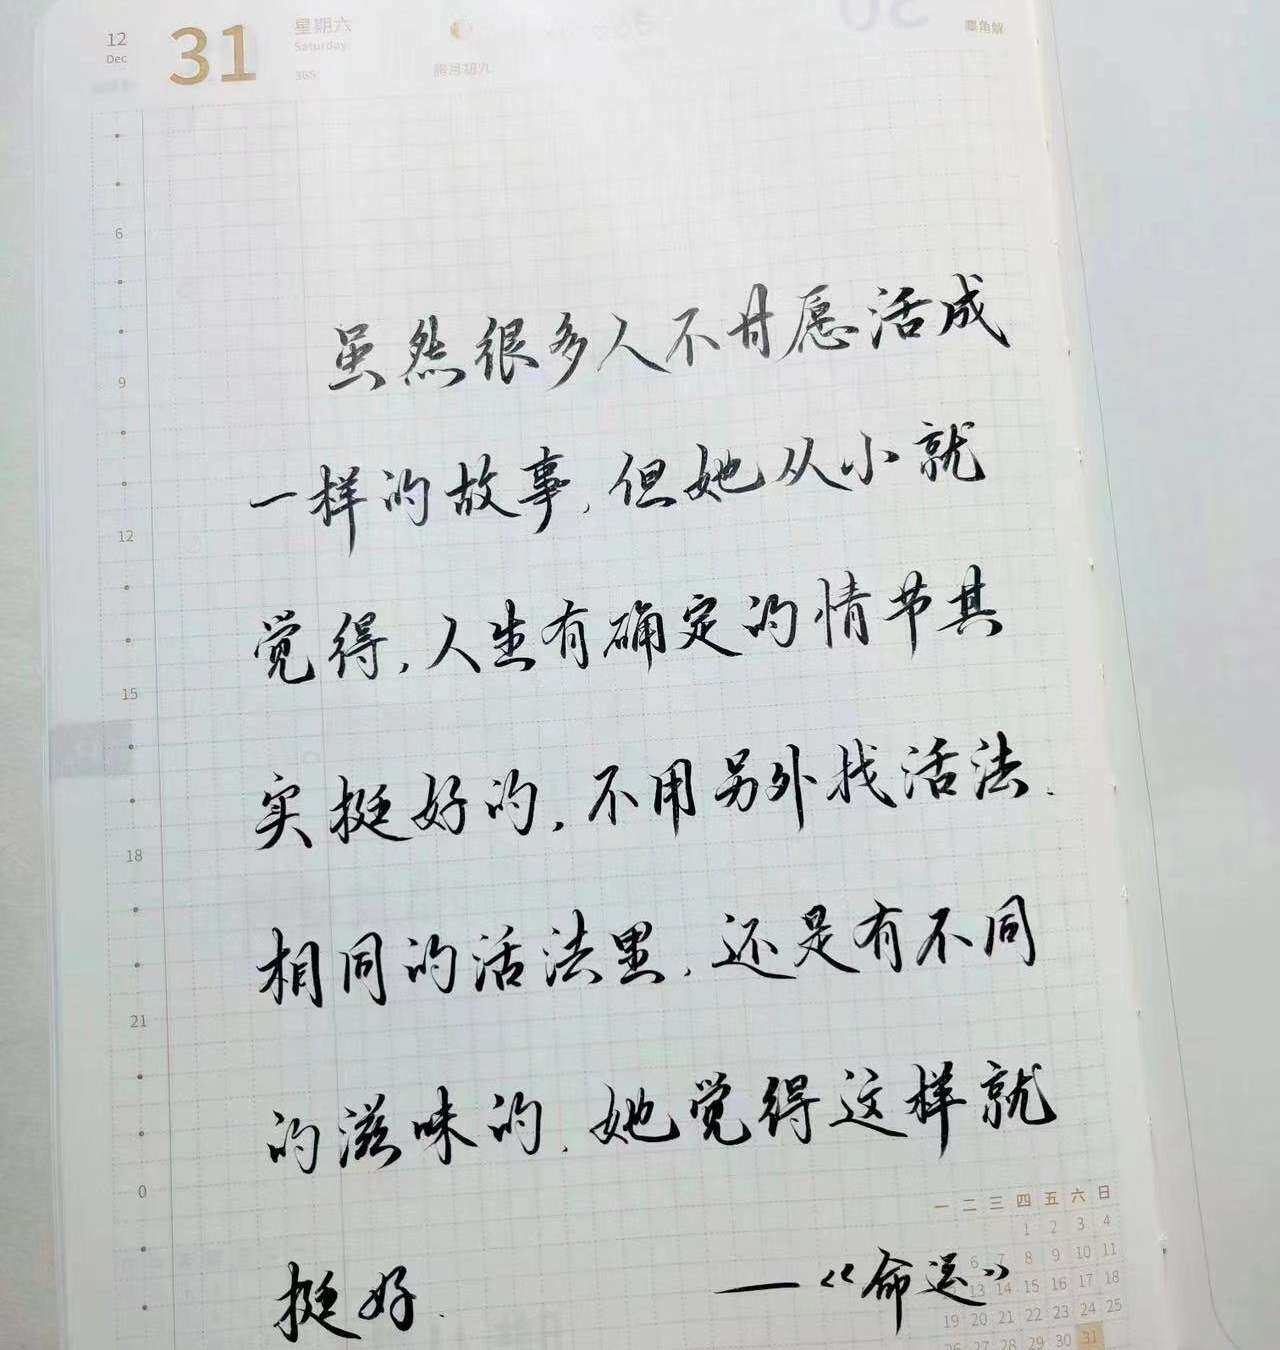 12
Dec
31
星期六
Saturday
365
腊月初九
麋角解
6
9
12
15
18
21
0
虽然很多人不甘愿活成
一样的故事,但她从小就
觉得,人生有确定的情节其
实挺好的,不用另外找活法.
相同的活法里,还是有不同
的滋味的,她觉得这样就
挺好.
——《命运》
一 二 三 四 五 六 日
1 2 3 4
6 7 8 9 10 11
13 14 15 16 17 18
19 20 21 22 23 24 25
26 27 28 29 30 31